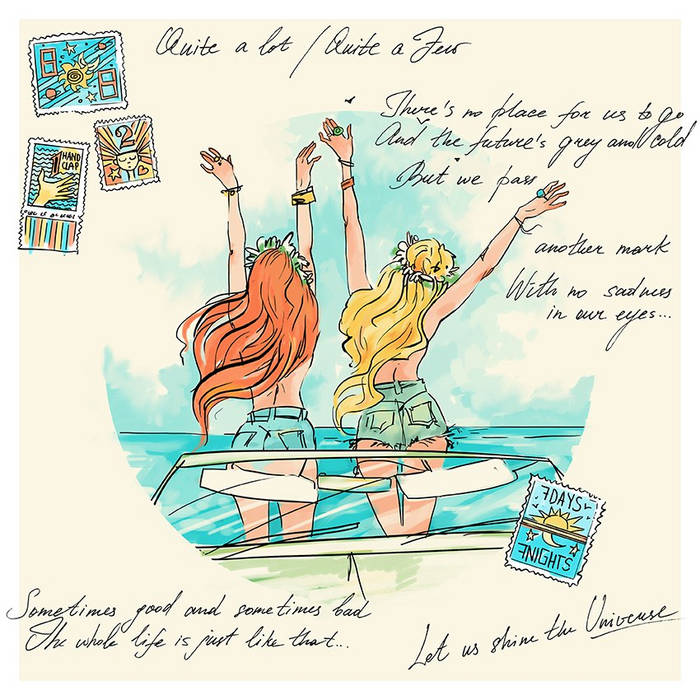 Quite a lot / Quite a Few
There's no place for us to go
And the future's grey and cold
But we pass
another mark
With no sadness
in our eyes...
2
1 HAND
CLAP
7 DAYS
7 NIGHTS
Sometimes good and sometimes bad
The whole life is just like that...
Let us shine the Universe